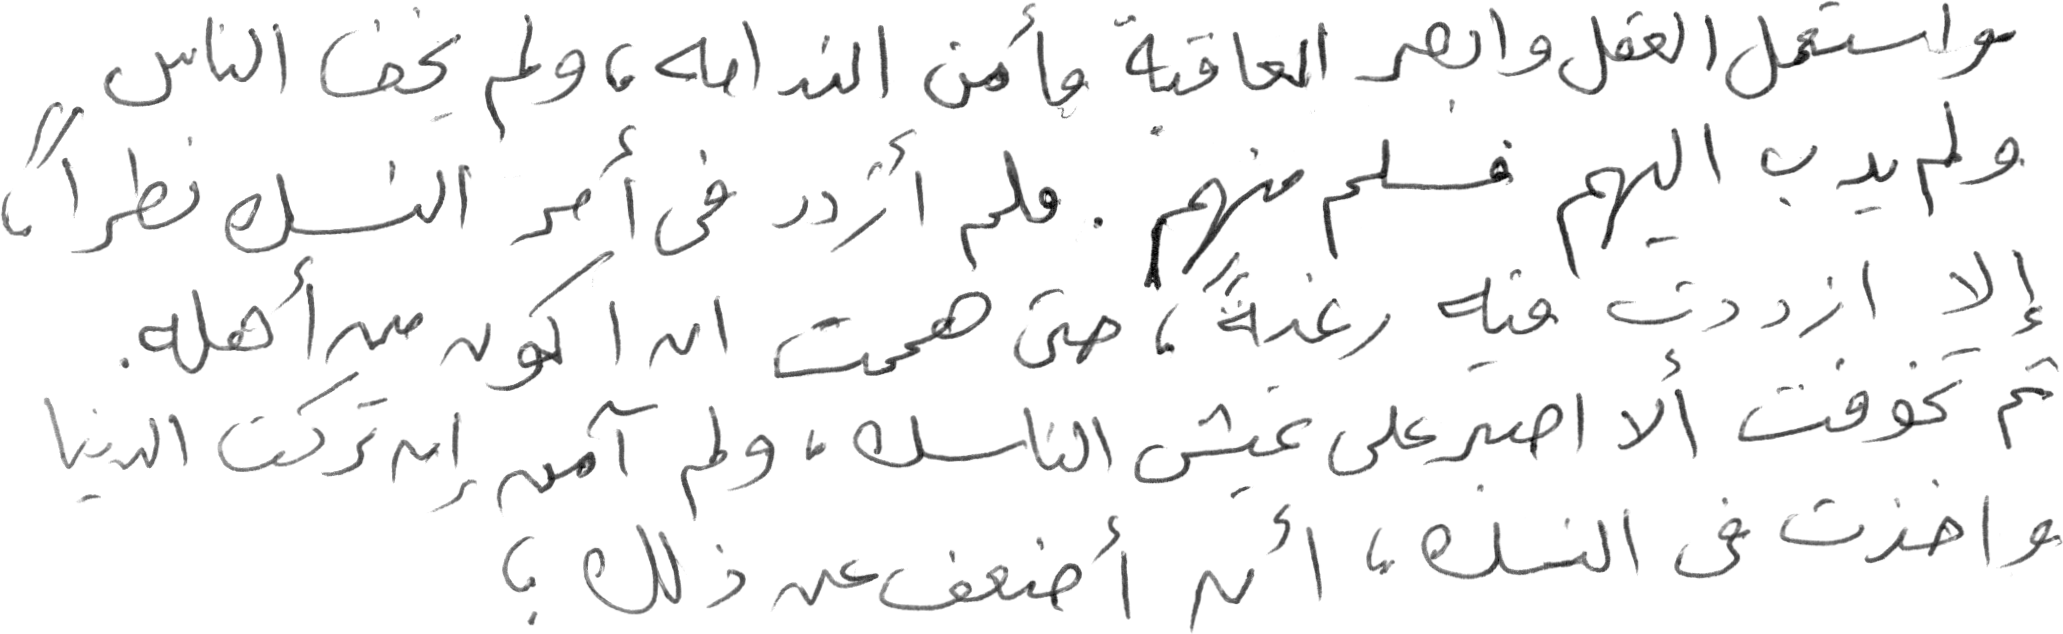 واستعمل العقل وابصر العاقبة فأمن الندامه، ولم يخف الناس
ولم يدب اليهم فسلم منهم. فلم أزدد في أمر النسك نظراً،
إلا ازددت فيه رغبةً، حتى هممت ان اكون من أهله.
ثم تخوفت ألا اصبر على عيش الناسك، ولم آمن إن تركت الدنيا
واخذت في النسك، أن أضعف عن ذلك؛